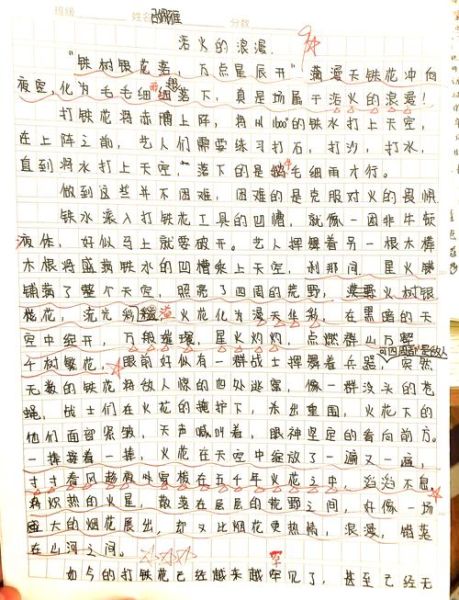 班级 姓名 分数
活火的浪漫
“铁树银花落，万点星辰开”满漫天铁花冲向
夜空，化为毛毛细细落下，真是场属于活火的浪漫！
打铁花将赤膊上阵，将以1600°的铁水打上天空，
在上阵之前，艺人们需要练习打石，打沙，打水，
直到将水打上天空，落下的是毛细雨才行。
做到这些并不困难，困难的是克服对火的畏惧
铁水滚入打铁花工具的凹槽，就像一团非牛顿
液体，好似马上就要破开。艺人挥舞着另一根木棒
木棍将盛满铁水的凹槽击上天空，刹那间，星火
铺满了整个天空，照亮了四周的荒野，火树银
花，流光 火花化为漫天华彩，在黑暗的天
空中绽开，万般璀璨，星火灼灼，点燃群山万
千树繁花，眼前好似有一群战士挥舞着兵器，突然
可四周都是敌人
无数的铁花将敌人惊的四处逃窜，像一群没头的苍
蝇，战士们在火花的掩护下，杀出重围，火花下的
他们面部紧皱，大声喊叫着，眼神坚定的看向前方。
一棒接着一棒，火花在天空中绽放了一遍又一遍，
寸寸春风 在五千年火花之中，滔滔不息
将炽热的火星，散落在层层的荒野之间，好像一场
盛大的烟花展出，却又比烟花更热情，浪漫，错落
在山河之间。
如今的打铁花已经越来越罕见了，甚至已经无